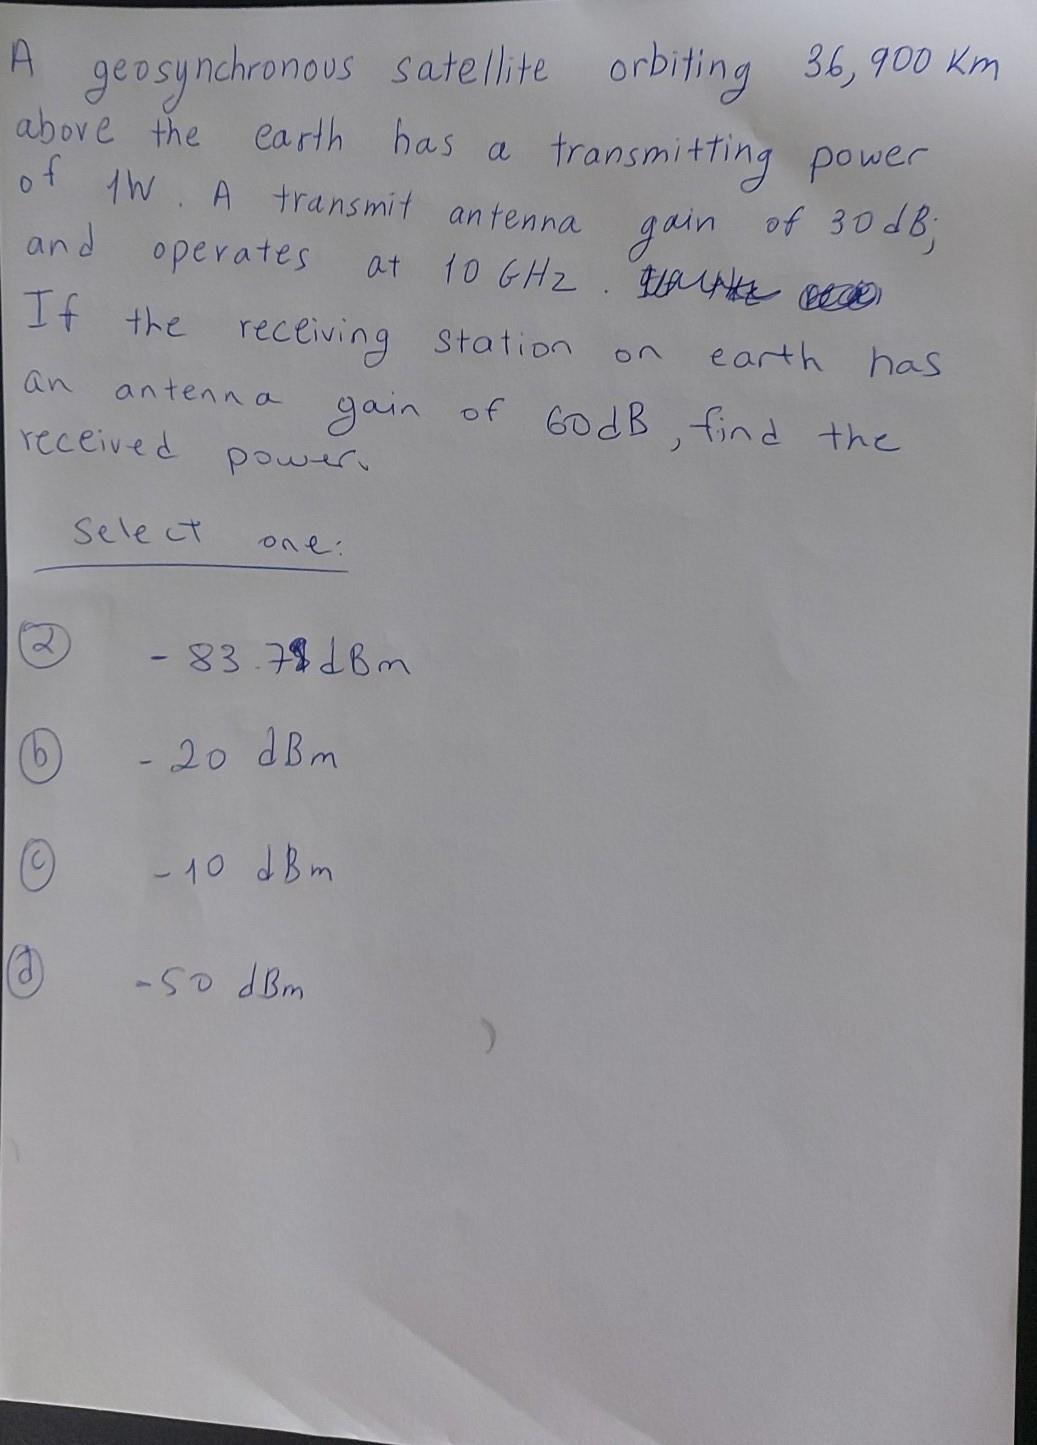 A geosynchronous satellite orbiting 36,900 Km
above the earth has a transmitting power
of 1W. A transmit antenna gain of 30dB;
and operates at 10 GHz.
If the receiving station on earth has
an antenna gain of 60dB, find the
received power.
Select one:
a - 83.78 dBm
b - 20 dBm
c - 10 dBm
d - 50 dBm